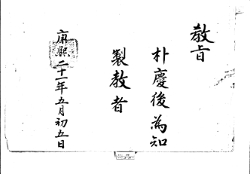 敎旨
朴慶後為知
製敎者
康熙二十一年五月初五日